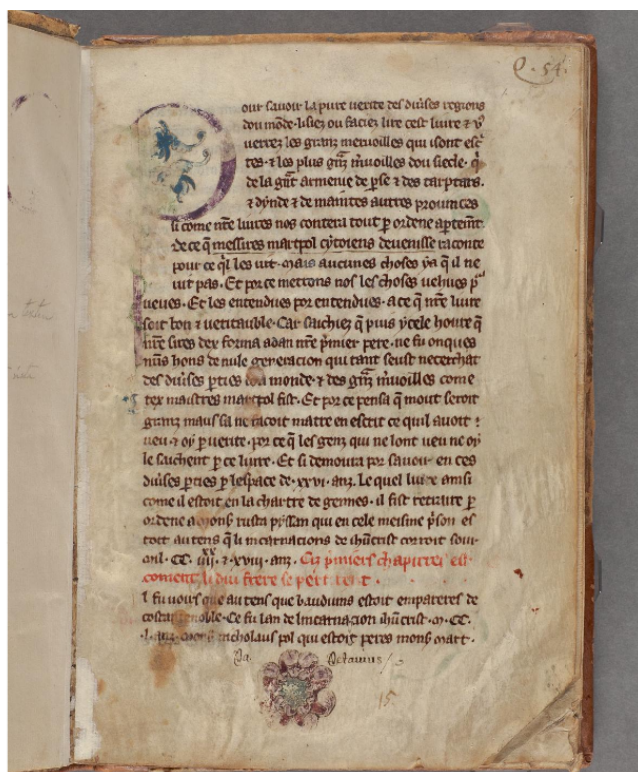 Q. 54.
our savoir la pure verite des div̾ses regions
dou mōde · lisiez ou faciez lire cest livre ⁊ v̾
verrez les granz mervoilles qui i sont esc̾
tes · ⁊ les plus gn̄z m̾voilles dou siecle · q̄
de la gn̄t armenie de ꝑse ⁊ des tarptars ·
⁊ dynde ⁊ de maintes autres provinces
si come nr̄e livres nos contera tout ꝑ ordene
de ce q̄ messires marc pol cytoiens de venisse raconte
pour ce q̄l les vit · Mais aucunes choses ya q̄ il ne
vit pas · Et por ce metrons nos les choses vehues p̄
veues · Et les entendues por entendues · a ce q̄ nr̄e livre
soit bon ⁊ veritauble · Car saichiez q̄ puis ycele houre q̄
nr̄e sires dex forma adan nr̄e p̾mier pere · ne fu onques
nūs hons de nule generacion qui tant seust ne cerchat
des div̾ses ꝑties dou monde · ⁊ des gn̄z m̾voilles come
cex maistres marc pol fist · Et por ce pensa q̄ mout seroit
granz maus sa ne facoit matre en escrit ce quil avoit
veu · ⁊ oy ꝑ verite · por ce q̄ les genz qui ne lont veu ne oy
le saichent ꝑ ce livre · Et si demoura por savoir en ces
div̾ses ꝑties ꝑ lespace de · xxvi · anz · Le quel livre ainsi
come il estoit en la chartre de gennes · il fist retraire ꝑ
ordene a mons̾ rusta pysan qui en cele meisme p̾son es
toit au tens q̄ li incarnacions de ih̄ucrist corroit sour
mil · CC · iiij · xx · ⁊ xviij · anz · Ciz p̾miers chapitres est
coment li dui frere se
l fu voirs que au tens que bauduins estoit empereres de
costantinoble · Ce fu lan de lincarnacion ih̄ucrist · M · CC ·
l · anz · mons̾ nicholaus pol qui estoit peres mons̾ marc ·
Pa. Petavius
15.